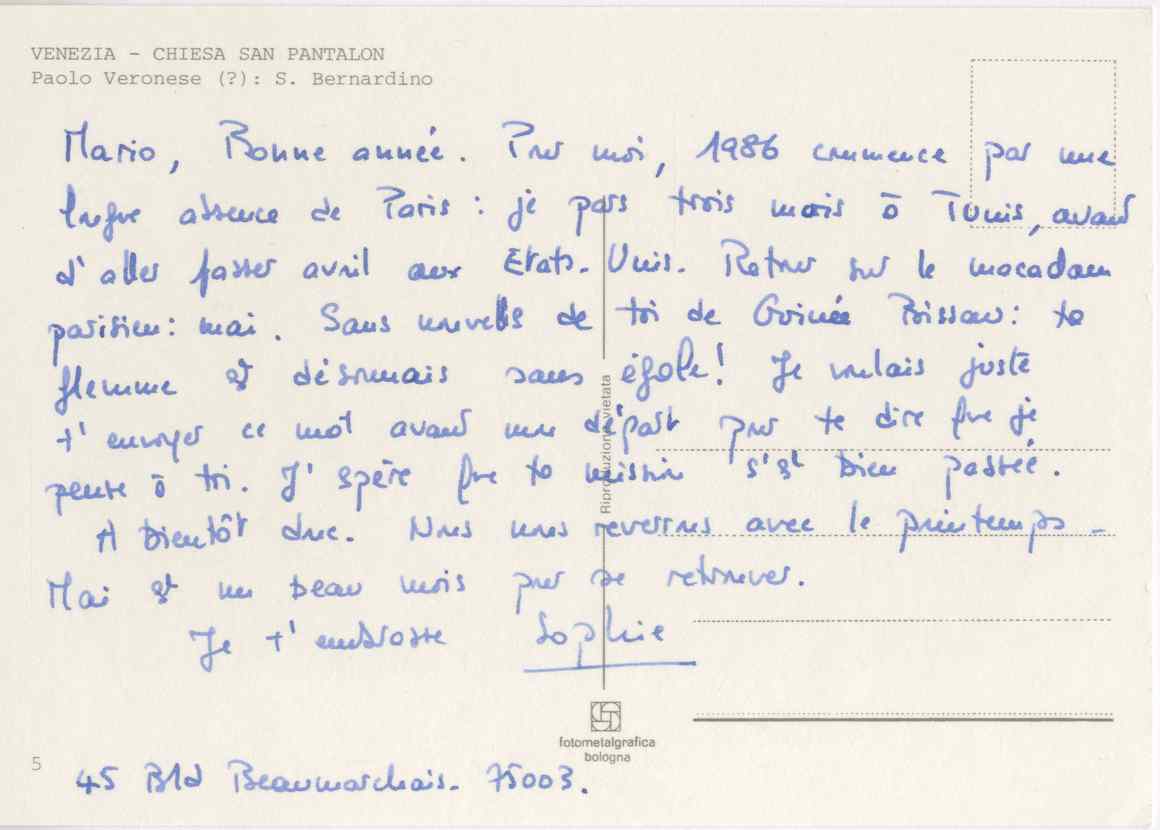 VENEZIA - CHIESA SAN PANTALON
Paolo Veronese (?): S. Bernardino
Mario, Bonne année. Pour moi, 1986 commence par une
longue absence de Paris : je pars trois mois à Tunis, avant
d'aller passer avril aux Etats-Unis. Retour sur le macadam
parisien : mai. Sans nouvelles de toi de Guinée Bissau : ta
flemme est désormais sans égale ! Je voulais juste
t'envoyer ce mot avant mon départ pour te dire que je
pense à toi. J'espère que ta mission s'est bien passée.
A bientôt donc. Nous nous reverrons avec le printemps -
Mai est un beau mois pour se retrouver.
Je t'embrasse Sophie
Riproduzione vietata
fotometalgrafica
bologna
5
45 Bld Beaumarchais. 75003.